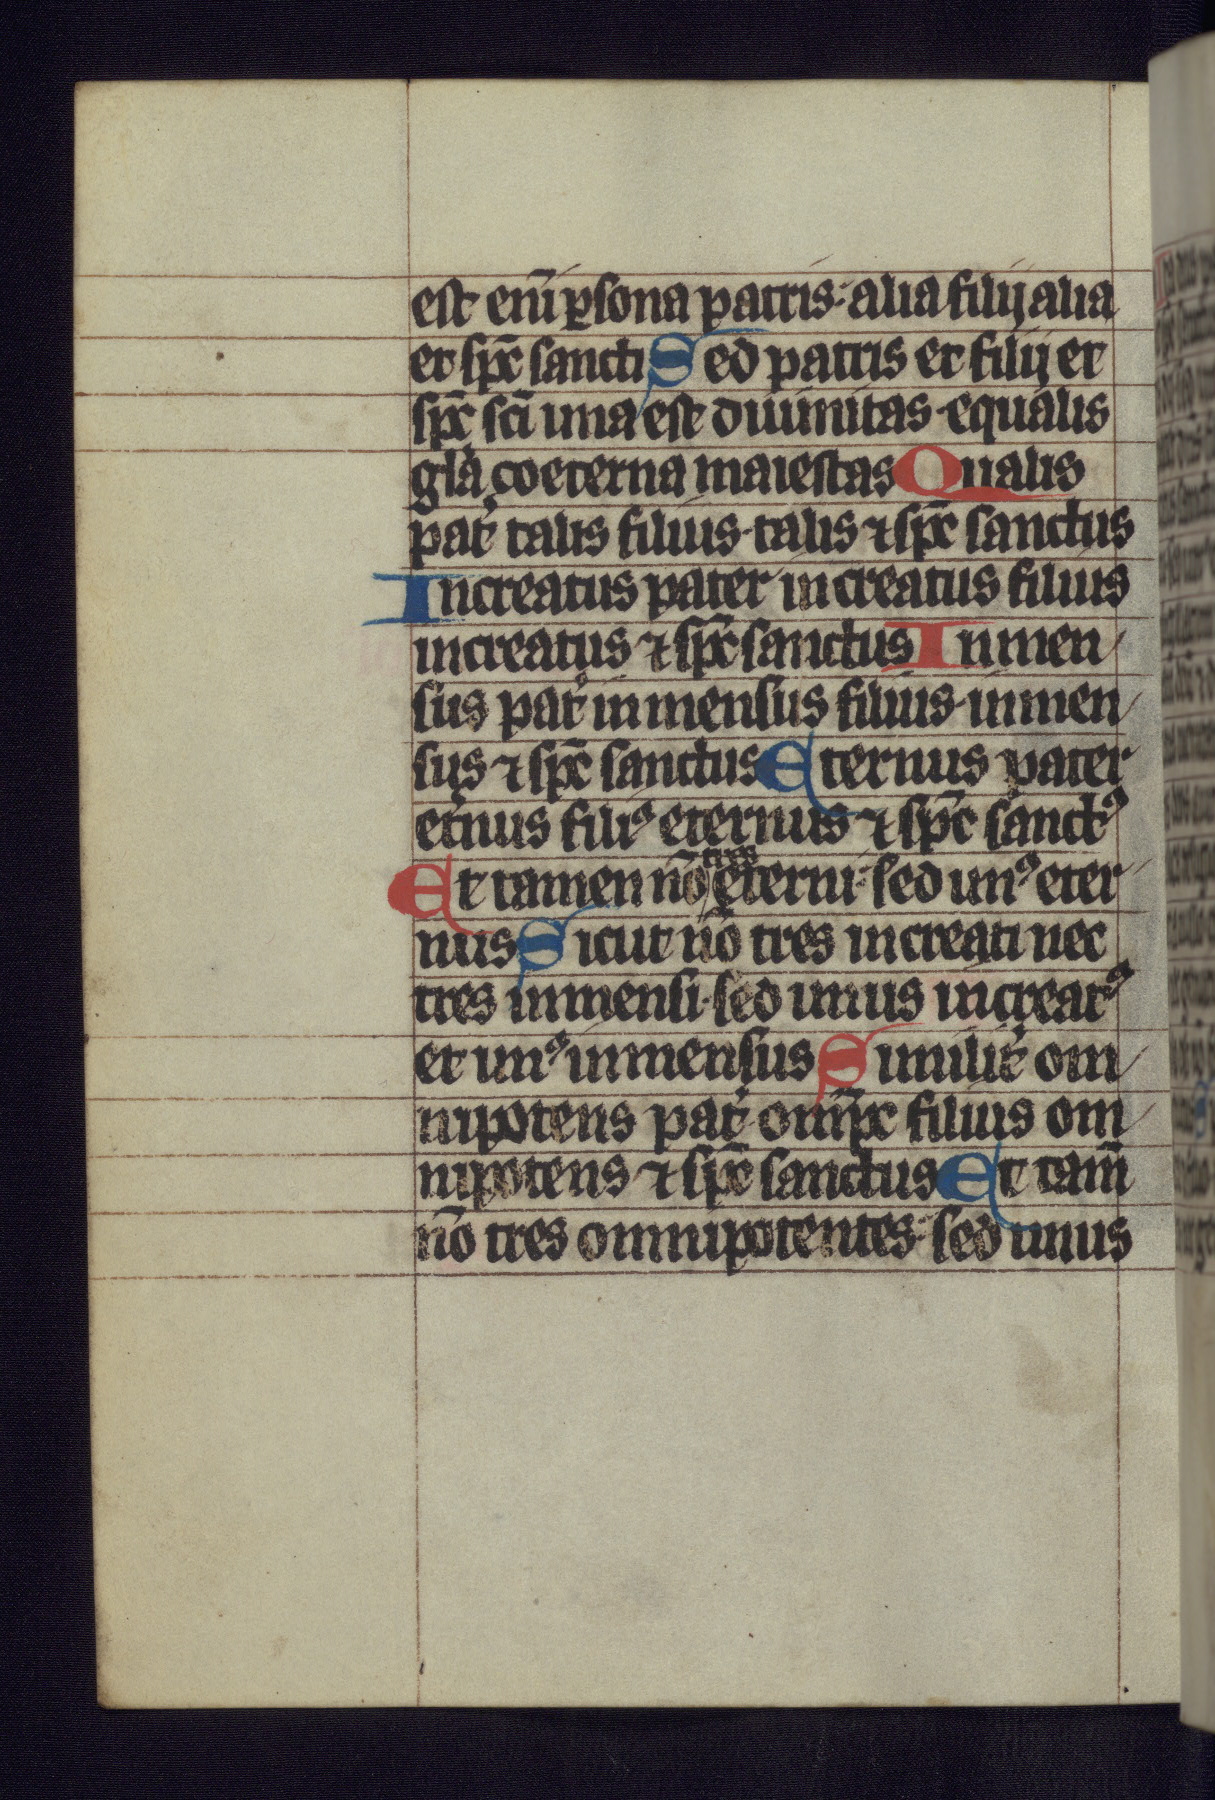 est eni̅ ꝑsona patris· alia filij alia
et sp̅c sancti Sed patris et filij et
sp̅c sc̅i una est diuinitas· equalis
gl̅a coeterna maiestas Qualis
pat̉ talis filius· talis ⁊ sp̅c sanctus
Increatus pater increatus filius
increatus ⁊ sp̅c sanctus Inmen
sus pat̉ inmensus filius· inmen
sus ⁊ sp̅c sanctus Eternus pater
et̉nus filiꝰ eternus ⁊ sp̅c sanctꝰ
tres
Et tamen no̅ eterni· sed unꝰ eter
nus Sicut no̅ tres increati nec
tres inmensi· sed unus increatꝰ
et unꝰ inmensus Similit̉ om
nipotens pat̉· omi̅pc filius om
nipotens ⁊ sp̅c sanctus Et tam̅
no̅ tres omnipotentes· sed unus